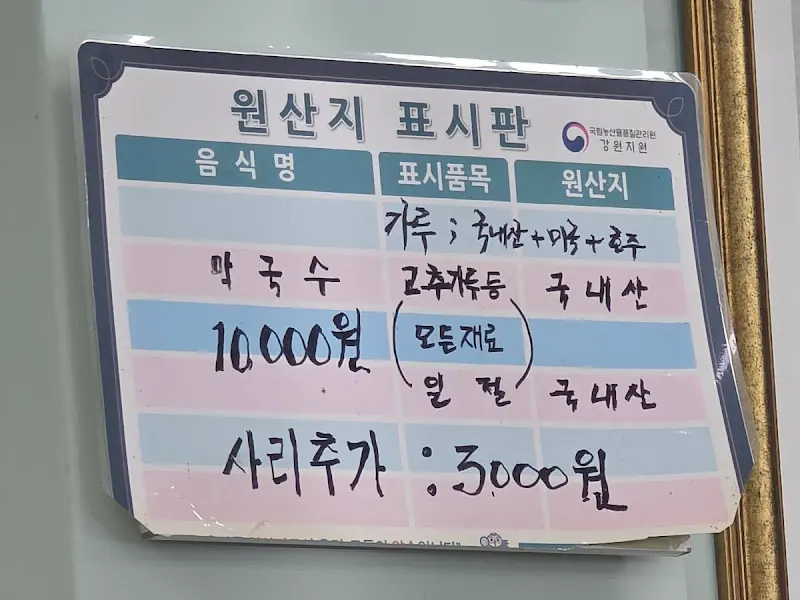 원산지 표시판
국립농산물품질관리원
강원지원
음식명 표시품목 원산지
가루; 국내산+미국+호주
막국수 고추가루등 국내산
10,000원 (모든재료
일절) 국내산
사리추가 : 3,000원